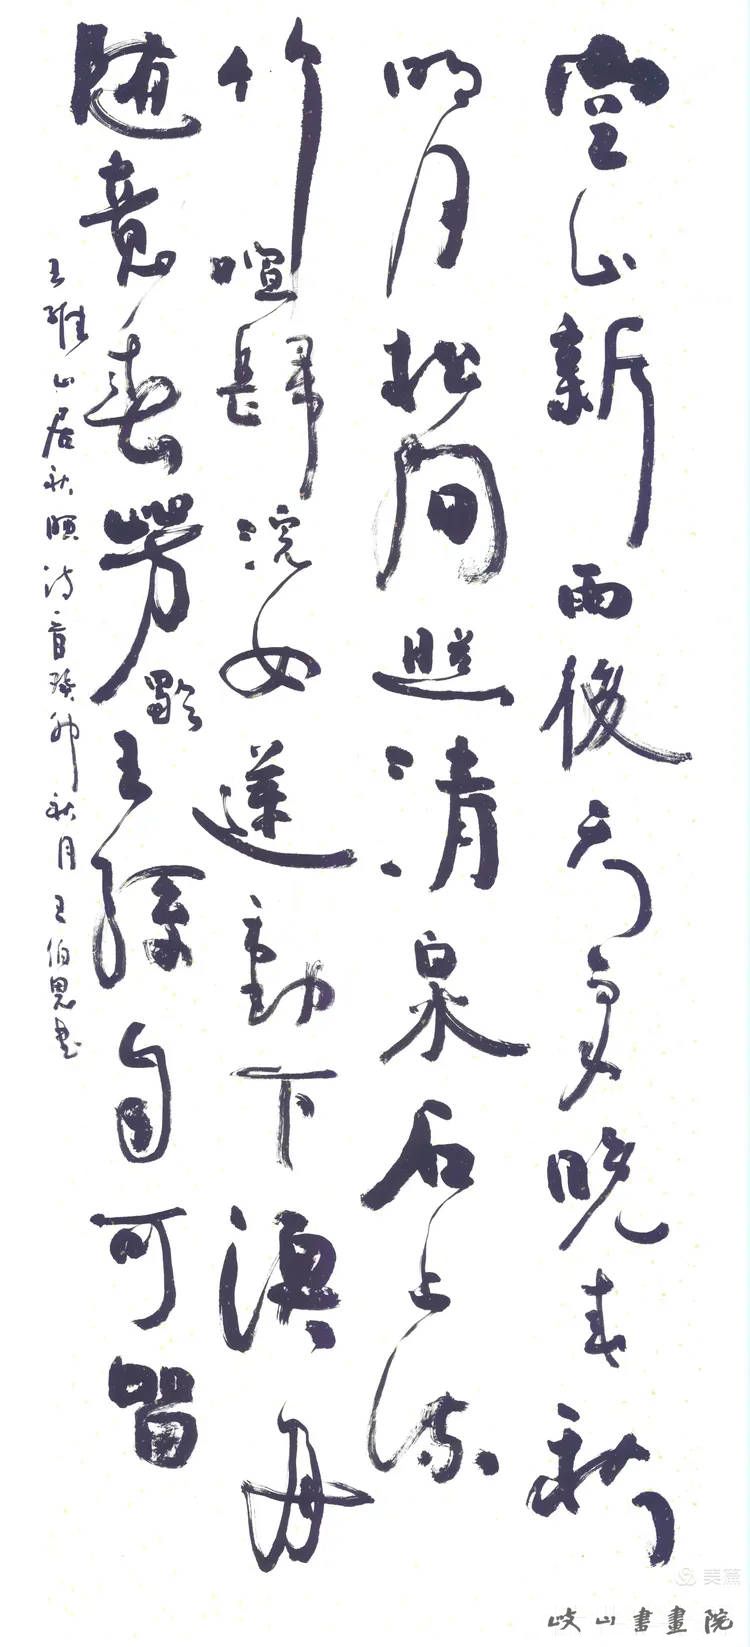 空山新雨後天氣晚来秋
明月松間照清泉石上流
竹喧歸浣女蓮動下漁舟
随意春芳歇王孫自可留
王維山居秋暝诗首癸卯秋月王伯恩書
岐山書畫院
美篇